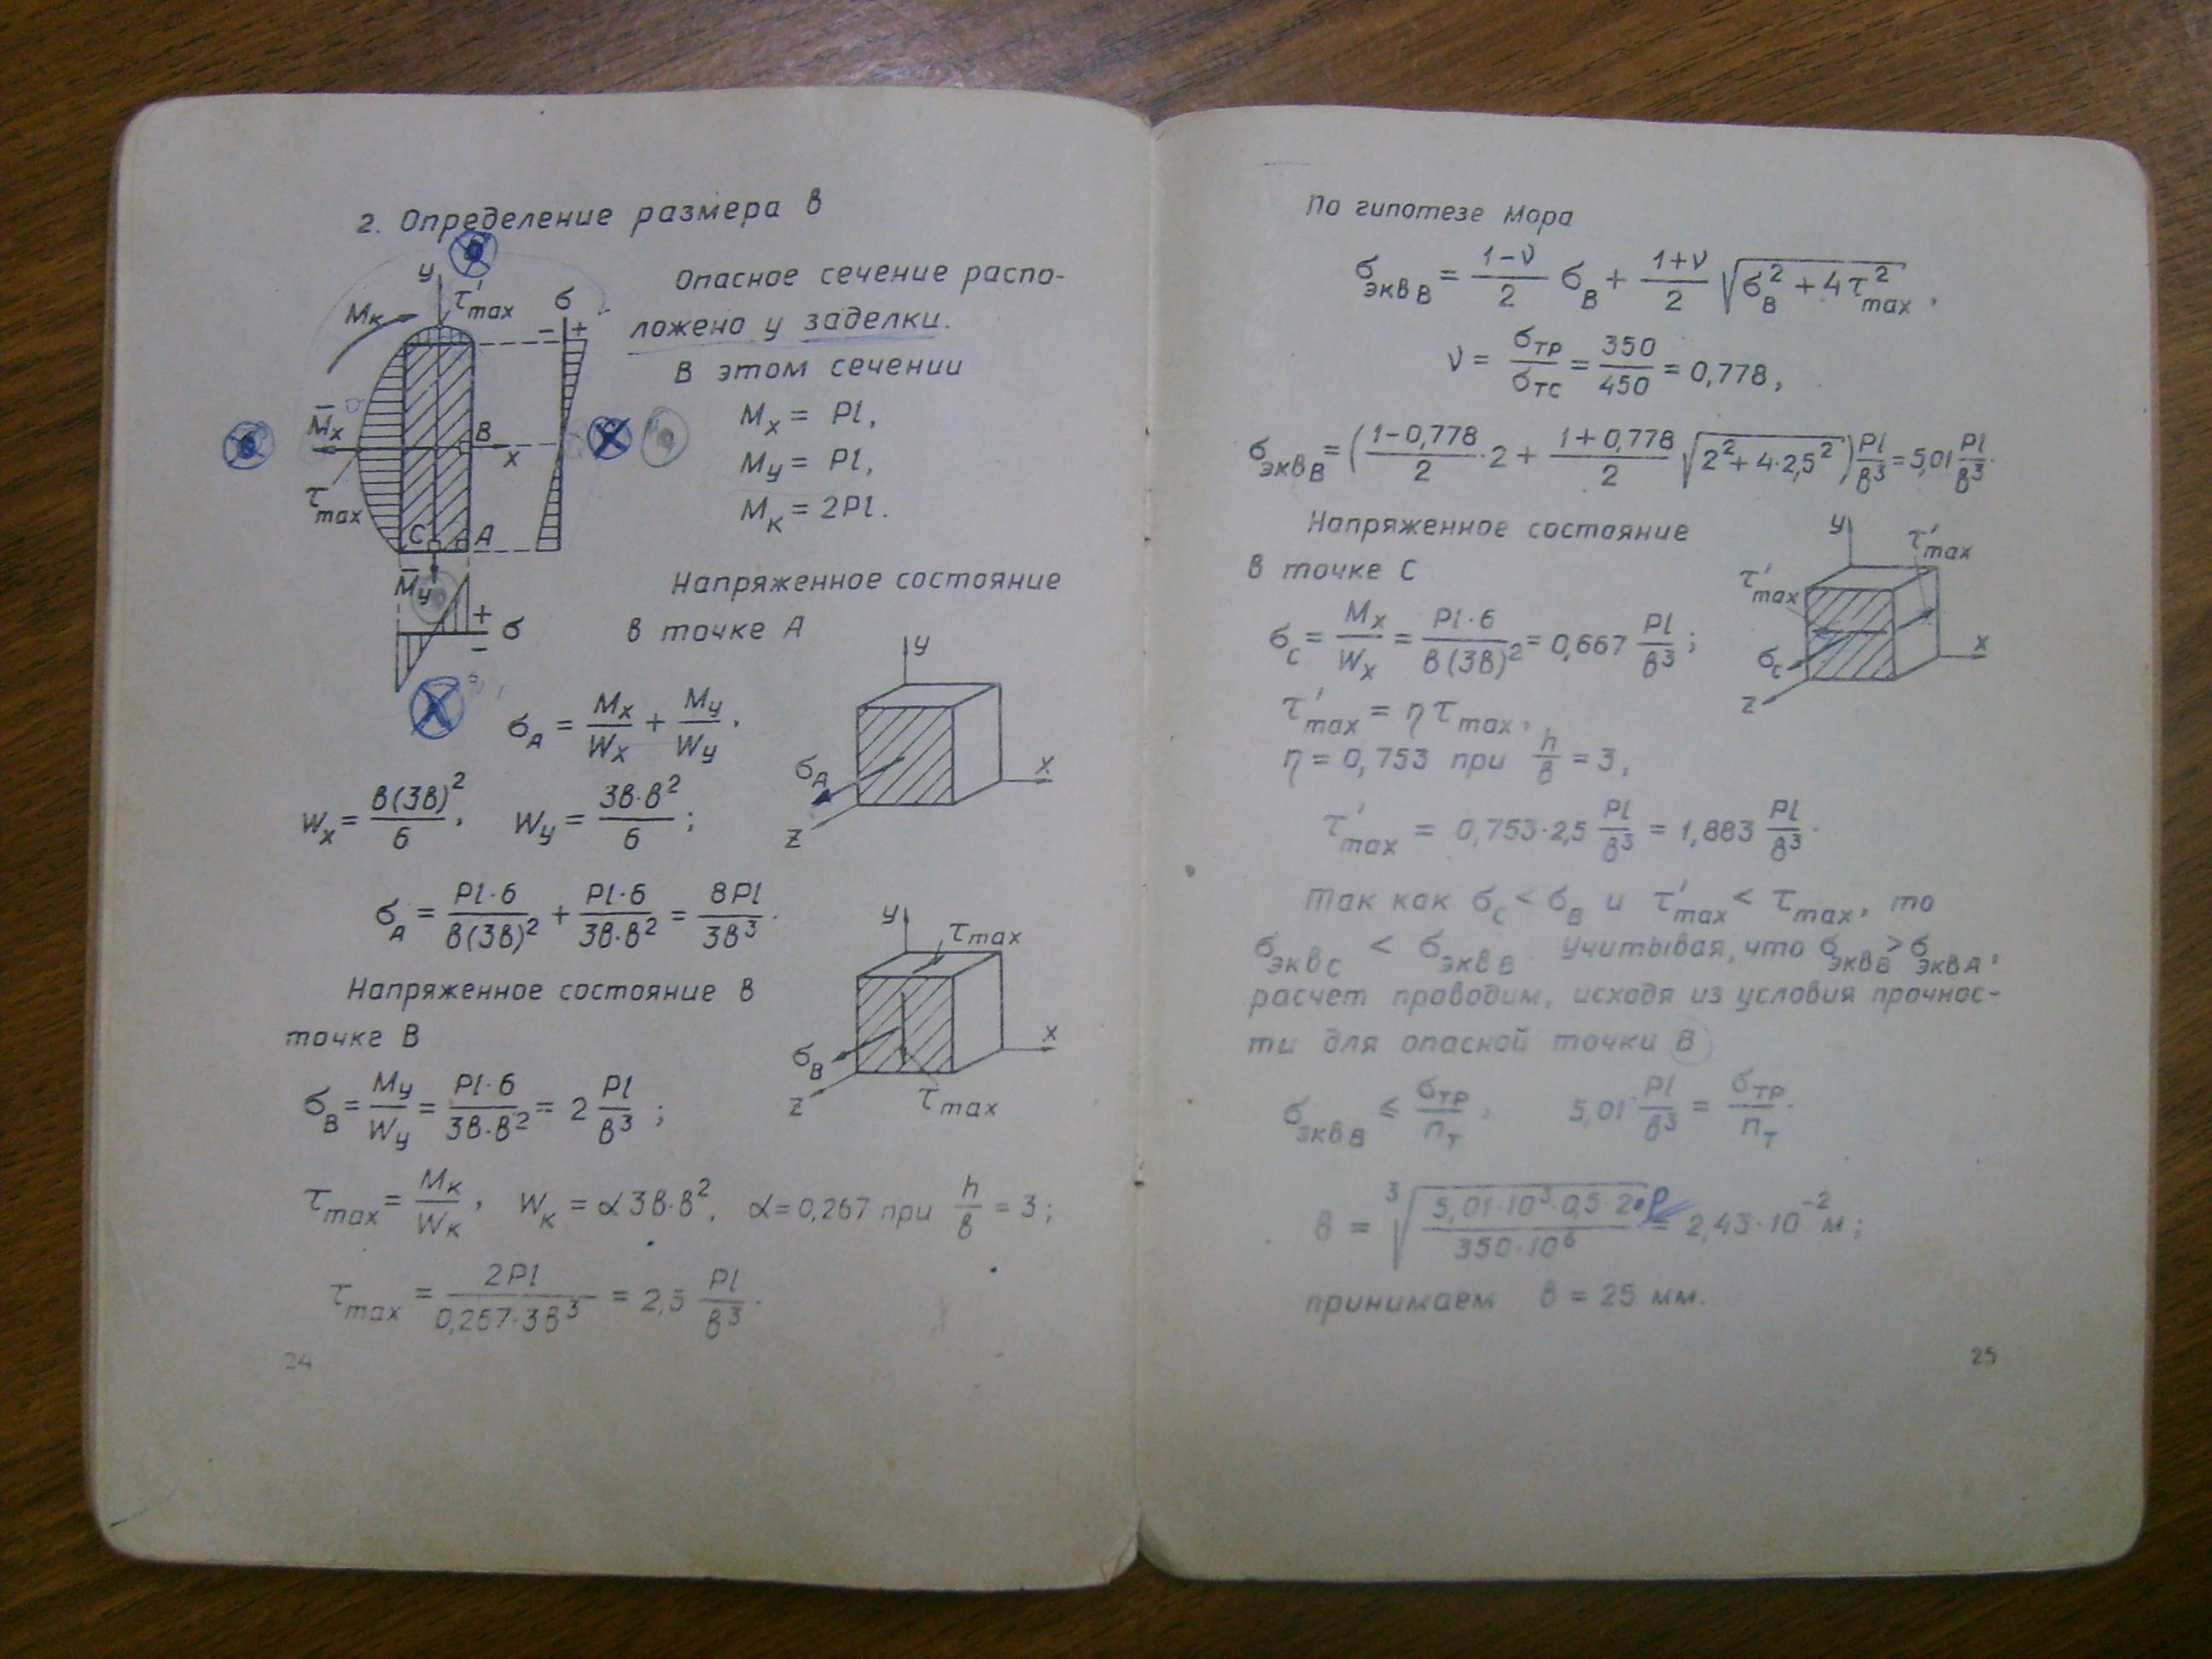 2. Определение размера в
y
τ'max
Mк
σ
- +
M̄x
B
x
τmax
C A
M̄y
+
-
σ
Опасное сечение распо-
ложено у заделки.
В этом сечении
Mx = Pl,
My = Pl,
Mк = 2Pl.
Напряженное состояние
в точке A
σA = Mx/Wx + My/Wy.
y
σA
x
z
Wx = в(3в)²/6, Wy = 3в·в²/6;
σA = Pl·6/в(3в)² + Pl·6/3в·в² = 8Pl/3в³.
Напряженное состояние в
точке B
y
τmax
σB
x
z
τmax
σB = My/Wy = Pl·6/3в·в² = 2 Pl/в³;
τmax = Mк/Wк, Wк = α3в·в², α = 0,267 при h/в = 3;
τmax = 2Pl/0,267·3в³ = 2,5 Pl/в³.
24
По гипотезе Мора
σэквB = (1-ν)/2 σB + (1+ν)/2 √(σB² + 4τ²max),
ν = σтр/σтс = 350/450 = 0,778,
σэквB = ((1-0,778)/2·2 + (1+0,778)/2 √(2²+4·2,5²)) Pl/в³ = 5,01 Pl/в³.
Напряженное состояние
в точке C
y
τ'max
τ'max
σC
x
z
σC = Mx/Wx = Pl·6/в(3в)² = 0,667 Pl/в³;
τ'max = ητmax,
η = 0,753 при h/в = 3,
τ'max = 0,753·2,5 Pl/в³ = 1,883 Pl/в³.
Так как σC < σB и τ'max < τmax, то
σэквC < σэквB. Учитывая, что σэквB > σэквA,
расчет проводим, исходя из условия прочнос-
ти для опасной точки B
σэквB ≤ σтр/nт, 5,01 Pl/в³ = σтр/nт.
в = ³√(5,01·10³·0,5·2·P/350·10⁶) = 2,43·10⁻² м;
принимаем в = 25 мм.
25